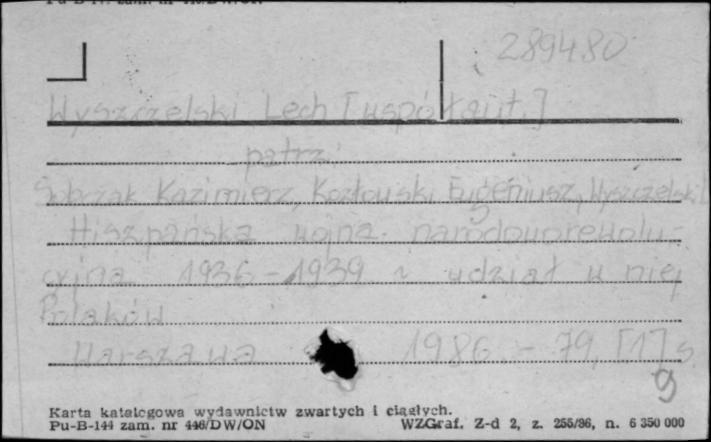 289480
Wyszczelski Lech [współaut.]
patrz:
Sobczak Kazimierz, Kozłowski Eugeniusz, Wyszczelski L
Hiszpańska wojna narodoworewolu-
cyjna 1936-1939 i udział w niej
Polaków
Warszawa 1986.- 79, [1] s
9
Karta katalogowa wydawnictw zwartych i ciągłych.
Pu-B-144 zam. nr 446/DW/ON WZGraf. Z-d 2, z. 255/86, n. 6 350 000